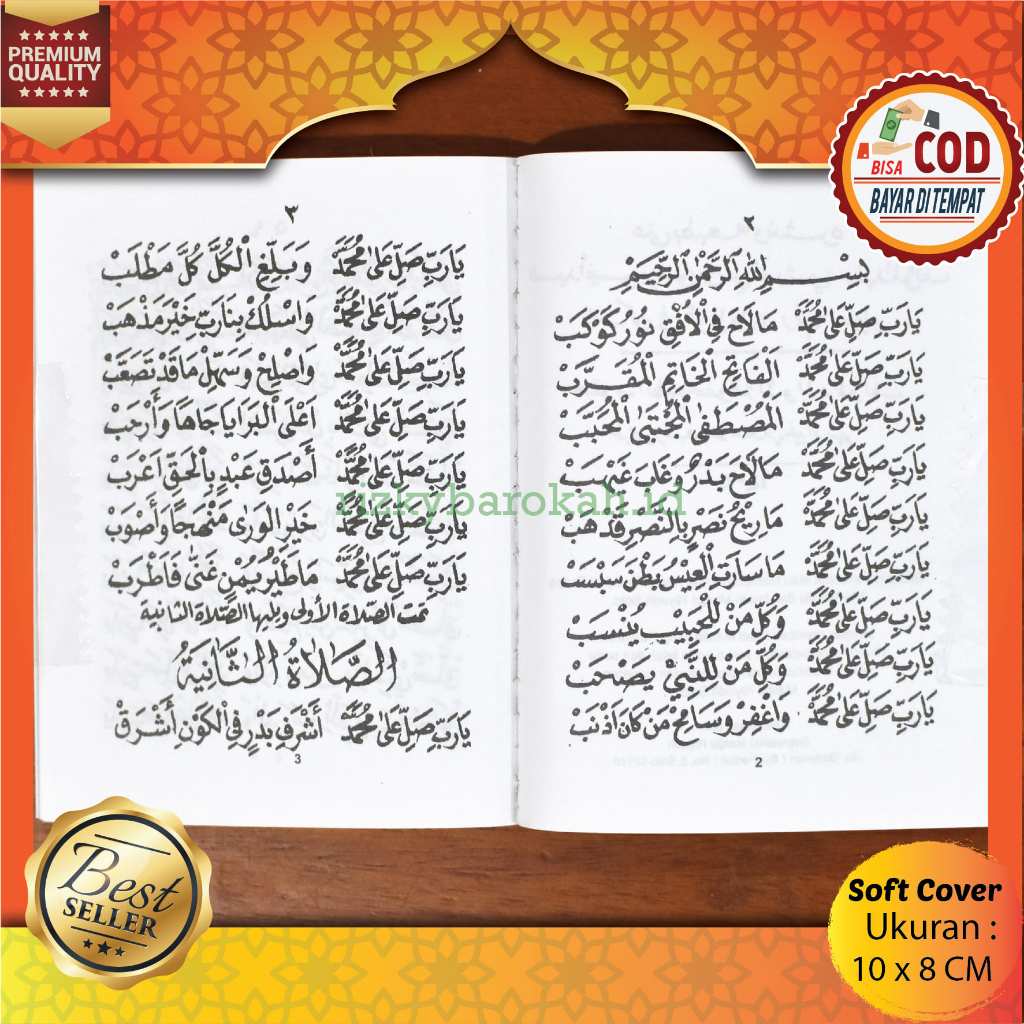 PREMIUM
QUALITY
BISA COD
BAYAR DI TEMPAT
٢
بِسْمِ اللهِ الرَّحْمٰنِ الرَّحِيْمِ
يَارَبِّ صَلِّ عَلَى مُحَمَّدْ مَالَاحَ فِي الْأُفْقِ نُوْرُ كَوْكَبْ
يَارَبِّ صَلِّ عَلَى مُحَمَّدْ اَلْفَاتِحِ الْخَاتِمِ الْمُقَرَّبْ
يَارَبِّ صَلِّ عَلَى مُحَمَّدْ اَلْمُصْطَفَى الْمُجْتَبَى الْمُحَبَّبْ
يَارَبِّ صَلِّ عَلَى مُحَمَّدْ مَالَاحَ بَدْرٌ وَغَابَ غَيْهَبْ
يَارَبِّ صَلِّ عَلَى مُحَمَّدْ مَارِيْحُ نَصْرٍ بِالنَّصْرِ قَدْهَبْ
يَارَبِّ صَلِّ عَلَى مُحَمَّدْ مَاسَارَتِ الْعِيْسُ بَطْنَ سَبْسَبْ
يَارَبِّ صَلِّ عَلَى مُحَمَّدْ وَكُلِّ مَنْ لِلْحَبِيْبِ يُنْسَبْ
يَارَبِّ صَلِّ عَلَى مُحَمَّدْ وَكُلِّ مَنْ لِلنَّبِيِّ يَصْحَبْ
يَارَبِّ صَلِّ عَلَى مُحَمَّدْ وَاغْفِرْ وَسَامِحْ مَنْ كَانَ اَذْنَبْ
2
٣
يَارَبِّ صَلِّ عَلَى مُحَمَّدْ وَبَلِّغِ الْكُلَّ كُلَّ مَطْلَبْ
يَارَبِّ صَلِّ عَلَى مُحَمَّدْ وَاسْلُكْ بِنَارَبِّ خَيْرَ مَذْهَبْ
يَارَبِّ صَلِّ عَلَى مُحَمَّدْ وَاصْلِحْ وَسَهِّلْ مَاقَدْ تَصَعَّبْ
يَارَبِّ صَلِّ عَلَى مُحَمَّدْ اَعْلَى الْبَرَايَا جَاهًا وَأَرْحَبْ
يَارَبِّ صَلِّ عَلَى مُحَمَّدْ أَصْدَقِ عَبْدٍ بِالْحَقِّ اَعْرَبْ
يَارَبِّ صَلِّ عَلَى مُحَمَّدْ خَيْرِ الْوَرَى مَنْهَجًا وَأَصْوَبْ
يَارَبِّ صَلِّ عَلَى مُحَمَّدْ مَاطَيْرُ يُمْنٍ غَنَّى فَاَطْرَبْ
تمت الصّلاة الأولى ويليها الصّلاة الثانية
اَلصَّلَاةُ الثَّانِيَةُ
يَارَبِّ صَلِّ عَلَى مُحَمَّدْ أَشْرَفِ بَدْرٍ فِي الْكَوْنِ أَشْرَقْ
3
rizkybarokah.id
Best
SELLER
Soft Cover
Ukuran :
10 x 8 CM